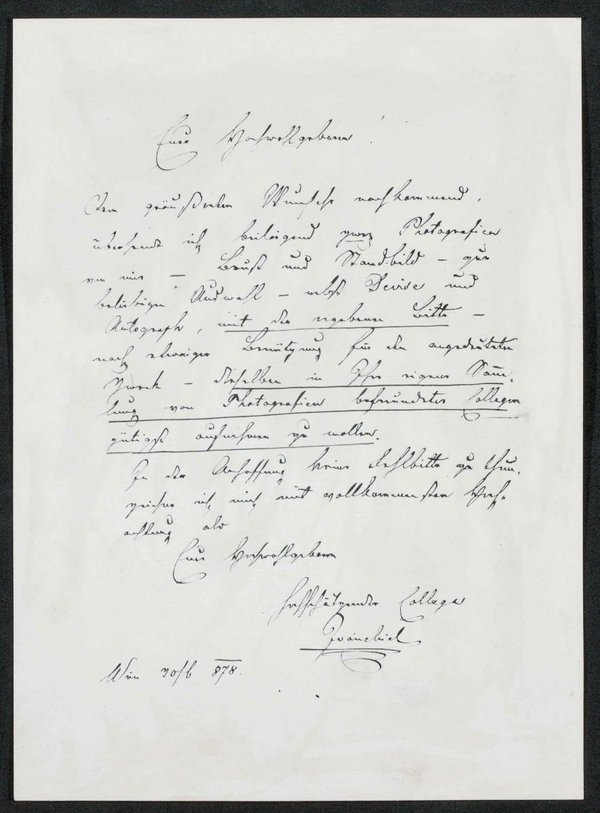 Euer Hochwohlgeboren!
Dem geäußerten Wunsche nachkommend,
übersende ich beiliegend zwey Photografien
von mir – Brust und Standbild – zur
beliebigen Auswahl – nebst Devise und
Autograph, mit der ergebenen Bitte –
nach etwaiger Benützung für den angedeuteten
Zweck – dieselben in Ihre eigene Samm-
lung von Photografien befreundeter Collegen
gütigst aufnehmen zu wollen.
In der Anhoffnung keine Fehlbitte zu thun,
zeichne ich mich mit vollkommenster Hoch-
achtung als
Euer Hochwohlgeboren
hochschätzender College
Ivanchich
Wien 30/6 878.